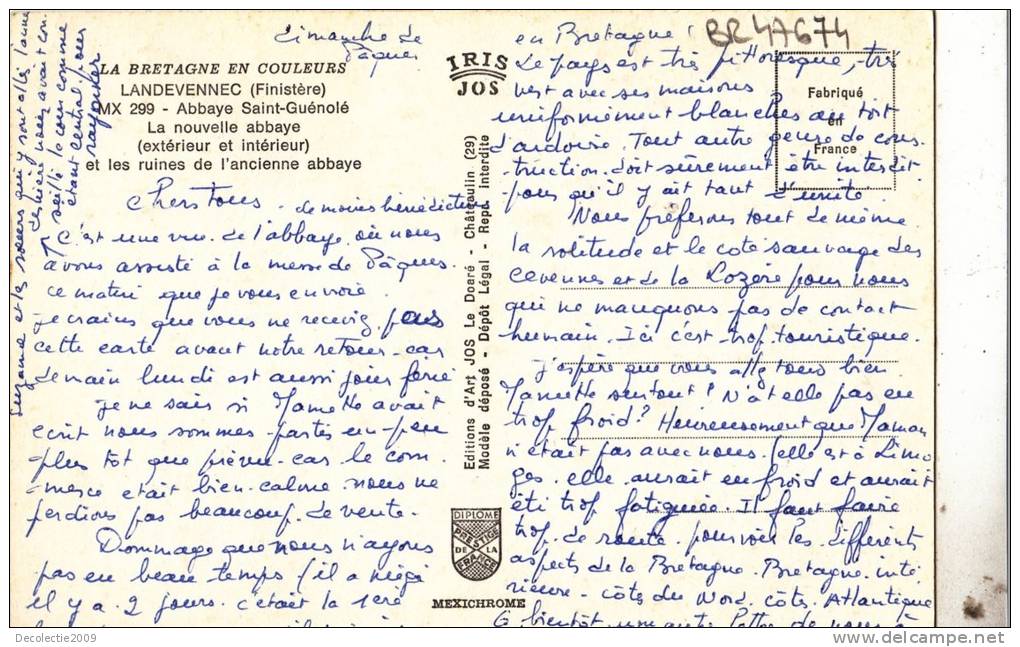 dimanche de
Pâques
LA BRETAGNE EN COULEURS
LANDEVENNEC (Finistère)
MX 299 - Abbaye Saint-Guénolé
La nouvelle abbaye
(extérieur et intérieur)
et les ruines de l'ancienne abbaye
Chers Tous
de moines bénédictins
C'est une vue de l'abbaye où nous
avons assisté à la messe de Pâques.
ce matin que je vous envoie.
Je crains que vous ne receviez pas
cette carte avant notre retour car
demain lundi est aussi jour férié
Je ne sais si Mamette avait
écrit nous sommes partis un peu
plus tôt que prévu car le com
merce était bien calme nous ne
perdions pas beaucoup de vente.
Dommage que nous n'ayons
pas eu beau temps (il a neigé
il y a 2 jours. c'était la 1ère
Suzanne et les sœurs qui y sont allés l'année
dernière nous avait con
seillé le coin comme
étant central pour
rayonner
IRIS
JOS
Editions d'Art JOS Le Doaré - Châteaulin (29)
Modèle déposé - Dépôt Légal - Repr. Interdite
DIPLOME
PRESTIGE
DE LA
FRANCE
MEXICHROME
BR47674
Fabriqué
en
France
en Bretagne !
Le pays est très pittoresque, très
vert avec ses maisons
uniformément blanches au toit
d'ardoise. Tout autre genre de cons
truction doit sûrement être interdit
pour qu'il y ait tant d'unité.
Nous préférons tout de même
la solitude et le côté sauvage des
Cévennes et de la Lozère pour nous
qui ne manquons pas de contact
humain. Ici c'est trop touristique.
J'espère que vous allez tous bien
Mamette surtout ? N'a t'elle pas eu
trop froid ? Heureusement que Maman
n'était pas avec nous (elle est à Limo
ges. elle aurait eu froid et aurait
été trop fatiguée. Il faut faire
trop de route pour voir les différents
aspects de la Bretagne. Bretagne inté
rieure - côtes du Nord, côtes Atlantique
A bientôt une autre lettre de nous à
Delcolectie2009